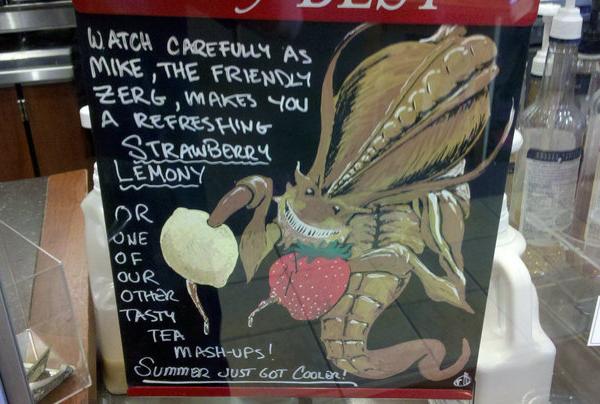 BEST
WATCH CAREFULLY AS
MIKE, THE FRIENDLY
ZERG, MAKES YOU
A REFRESHING
STRAWBERRY
LEMONY
OR
ONE
OF
OUR
OTHER
TASTY
TEA
MASH-UPS!
SUMMER JUST GOT COOLER!